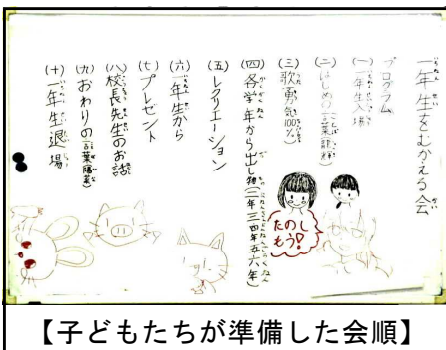 一年生をむかえる会
プログラム
(一)一年生入場
(二)はじめの言葉
(三)歌 勇気100%
(四)各学年から出し物(二年三四年五六年)
(五)レクリエーション
(六)一年生から
(七)プレゼント
(八)校長先生のお話
(九)おわりの言葉
(十)一年生退場
たのしもう!
【子どもたちが準備した会順】